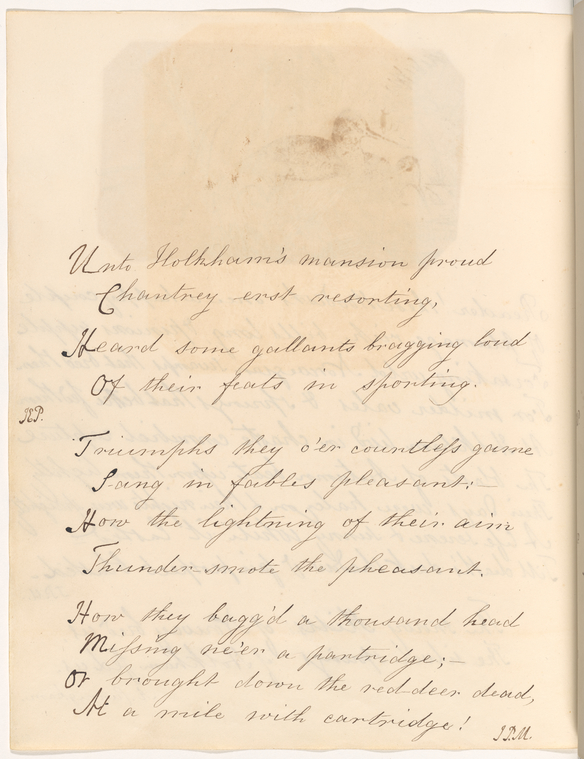 Unto Holkham's mansion proud
Chantrey erst resorting,
Heard some gallants bragging loud
Of their feats in sporting.
Triumphs they o'er countless game
Sang in fables pleasant:—
How the lightning of their aim
Thunder-smote the pheasant.
How they bagg'd a thousand head
Missing ne'er a partridge;—
Or brought down the red-deer dead,
At a mile with cartridge!
J.P.M.